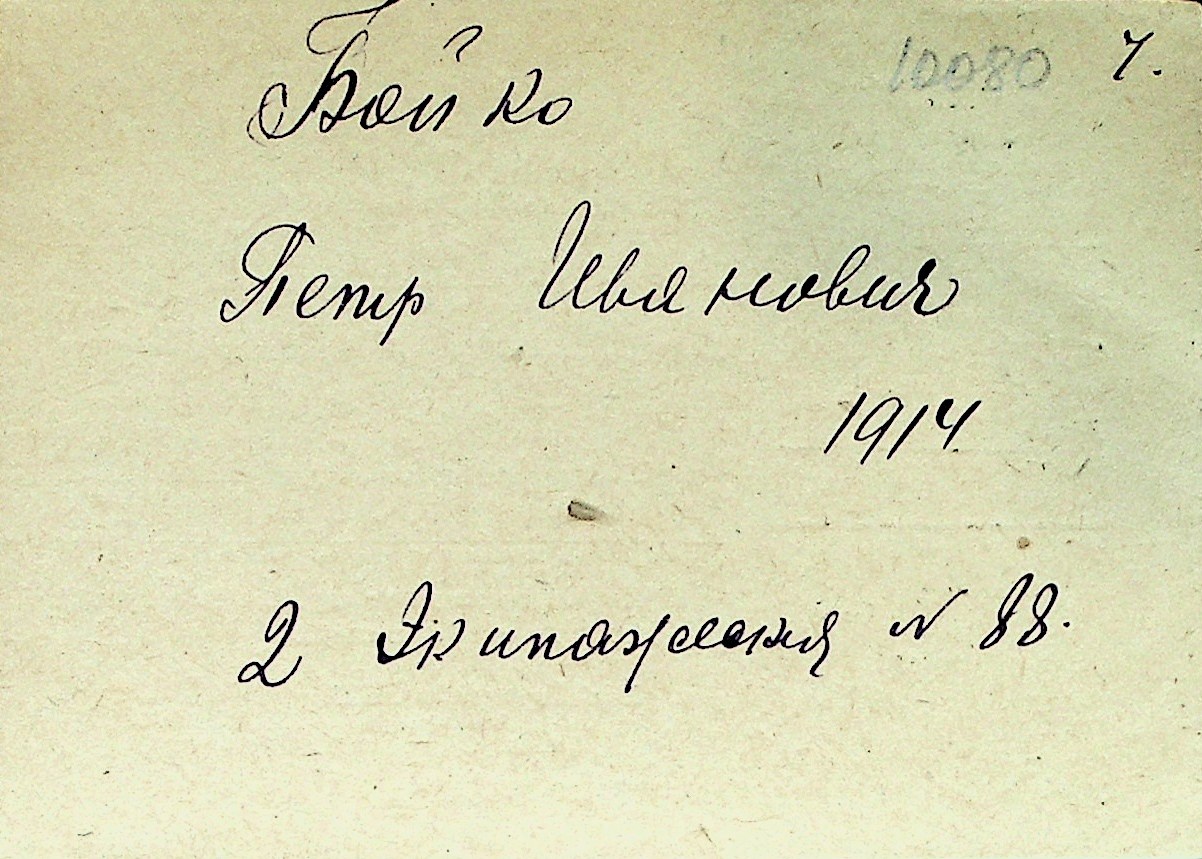 Бойко 10080 7.
Петр Иванович
1914
2 Экипажская N 88.